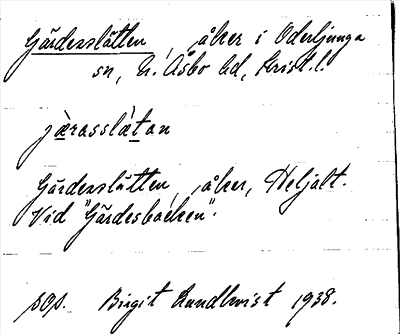 Gärdesslätten, åker i Oderljunga
sn, N. Åsbo hd, Krist. l.
jærasslætan
Gärdesslätten, åker, Heljalt.
Vid "Gärdesbacken".
pop. Birgit Rundkvist 1938.